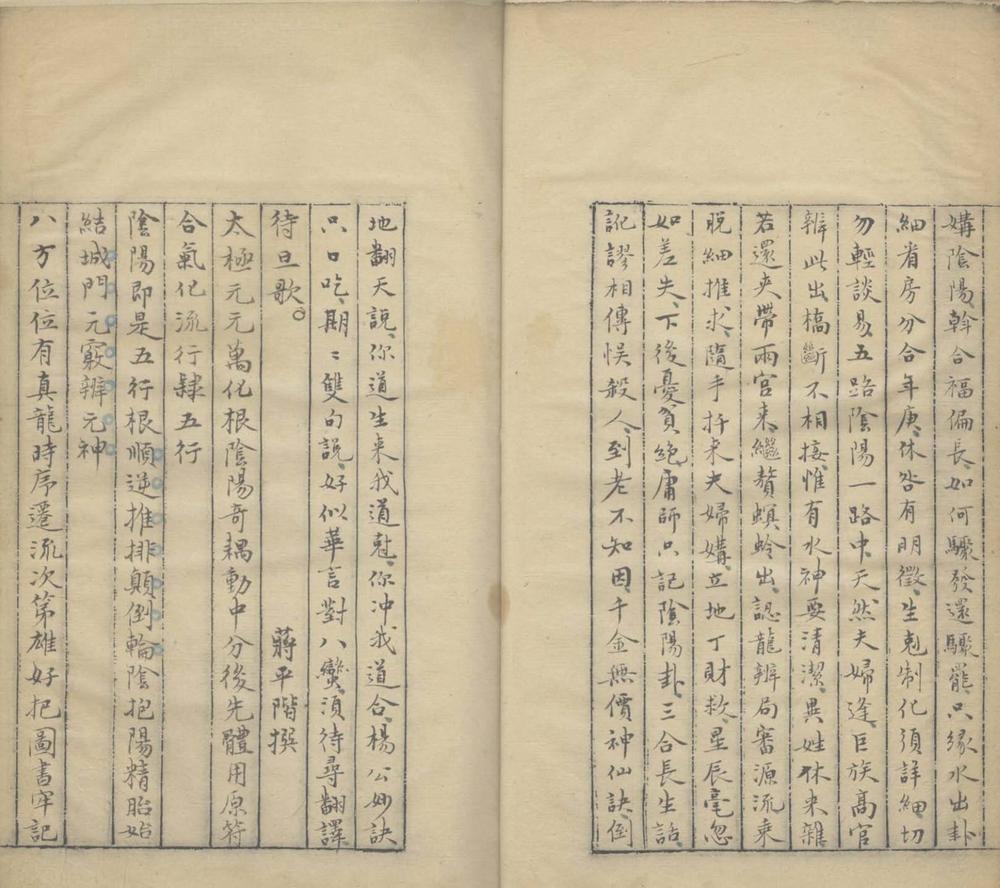 媾陰陽斡合福偏長、如何驟發還驟罷、只緣水出卦
細省房分合年庚、休咎有明徵、生尅制化須詳細、切
勿輕談易、五路陰陽一路中、天然夫婦逢、巨族高官
辨此出槁斷不相接、惟有水神要清潔、異姓休来雜
若還夾帶兩宮来、繼贅螟蛉出、認龍辨局審源流乘
脫細推求、隨手拈来夫婦媾、立地丁財救、星辰毫忽
如差失、下後憂貧絕、庸師只記陰陽卦、三合長生話、
訛謬相傳悞殺人、到老不知因、千金無價神仙訣、倒
地翻天說、你道生来我道尅、你冲我道合、楊公妙訣
只口吃、期〻雙句說、好似華言對八蠻、須待尋翻譯
待旦歌。 蔣平階撰
太極元元萬化根陰陽奇耦動中分後先體用原符
合氣化流行肆五行
陰陽即是五行根順逆推排顛倒輪陰抱陽精胎始
結城門元竅辨元神
八方位位有真龍時序遷流次第雄好把圖書牢記